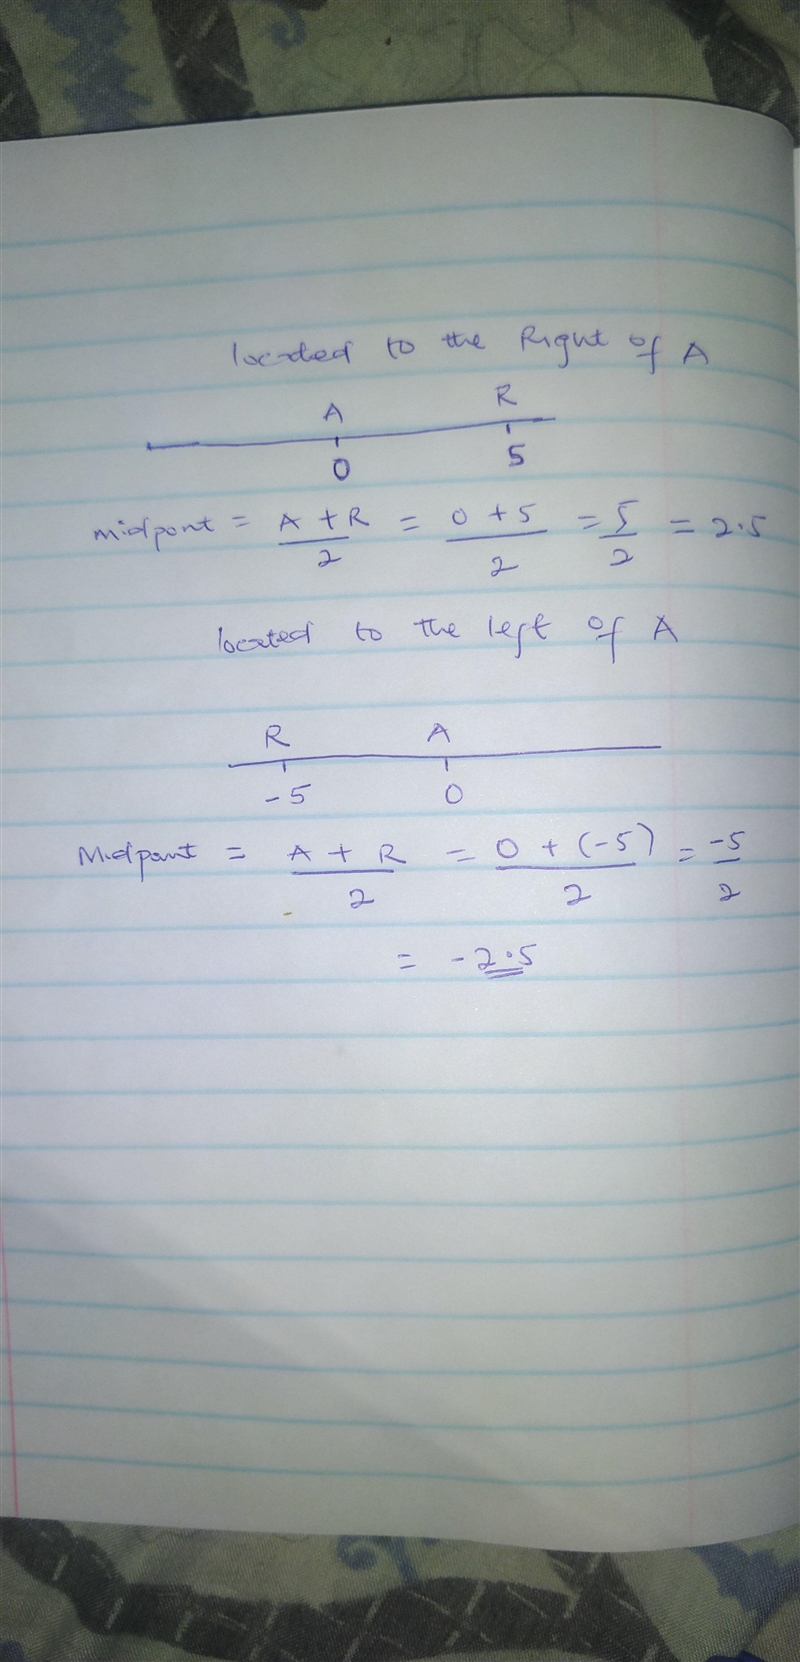 located to the Right of A
A R
0 5
midpont = A + R / 2 = 0 + 5 / 2 = 5 / 2 = 2.5
located to the left of A
R A
-5 0
Midpont = A + R / 2 = 0 + (-5) / 2 = -5 / 2
= -2.5